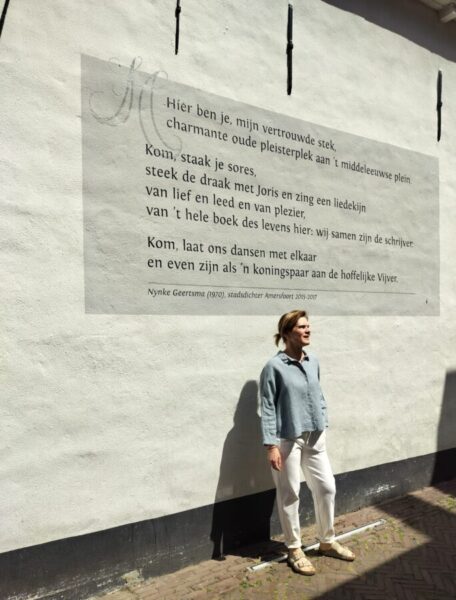 M
Hier ben je, mijn vertrouwde stek,
charmante oude pleisterplek aan 't middeleeuwse plein.
Kom, staak je sores,
steek de draak met Joris en zing een liedekijn
van lief en leed en van plezier,
van 't hele boek des levens hier: wij samen zijn de schrijver.
Kom, laat ons dansen met elkaar
en even zijn als 'n koningspaar aan de hoffelijke Vijver.
Nynke Geertsma (1970), stadsdichter Amersfoort 2015-2017